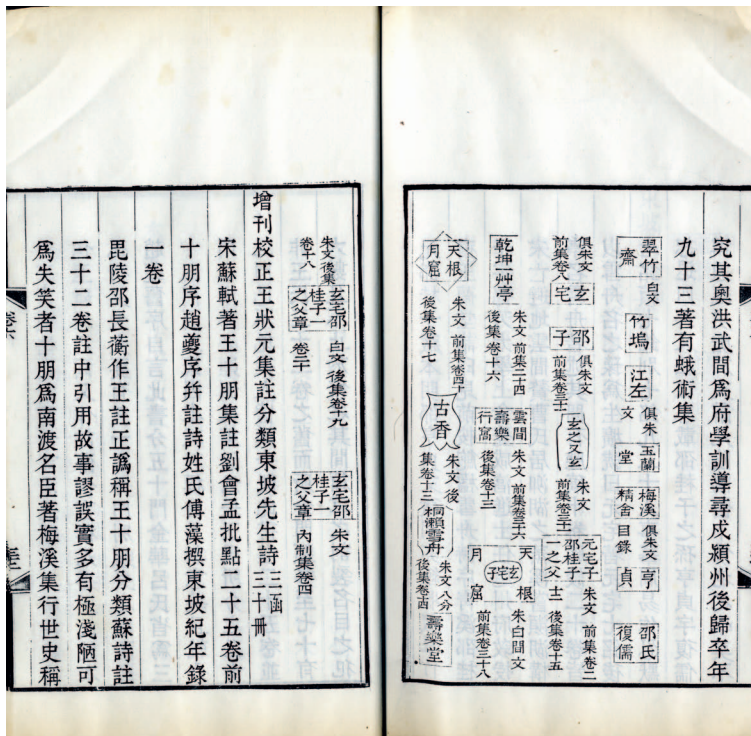 究其奧洪武間爲府學訓導尋戍潁州後歸卒年
九十三著有蛾術集
翠竹齋 白文 竹塢 江左 俱朱文 玉蘭堂 梅溪精舍 俱朱文目錄 亨貞 邵氏復儒
俱朱文前集卷八 玄宅 邵子 俱朱文前集卷三十 玄之又玄 朱文前集卷三十一 元宅子邵桂子一之父 朱文 前集卷二十二 後集卷十五
乾坤一艸亭 朱文 前集二十四後集卷十六 雲間壽樂行窩 朱文 前集三十六後集卷十三 天根月窟玄宅子 朱白間文前集卷三十八
天根月窟 朱文 前集卷四十後集卷十七 古香 朱文 後集卷十三 桐瀨雪舟 朱文八分後集卷十四 壽樂堂
朱文後集卷十八 玄宅邵桂子一之父章 白文 後集卷十九卷二十 玄宅邵桂子一之父章 朱文內制集卷四
增刊校正王狀元集註分類東坡先生詩 三函三十冊
宋蘇軾著王十朋集註劉會孟批點二十五卷前
十朋序趙夔序幷註詩姓氏傅藻撰東坡紀年錄
一卷
毘陵邵長蘅作王註正譌稱王十朋分類蘇詩註
三十二卷註中引用故事謬誤實多有極淺陋可
爲失笑者十朋爲南渡名臣著梅溪集行世史稱